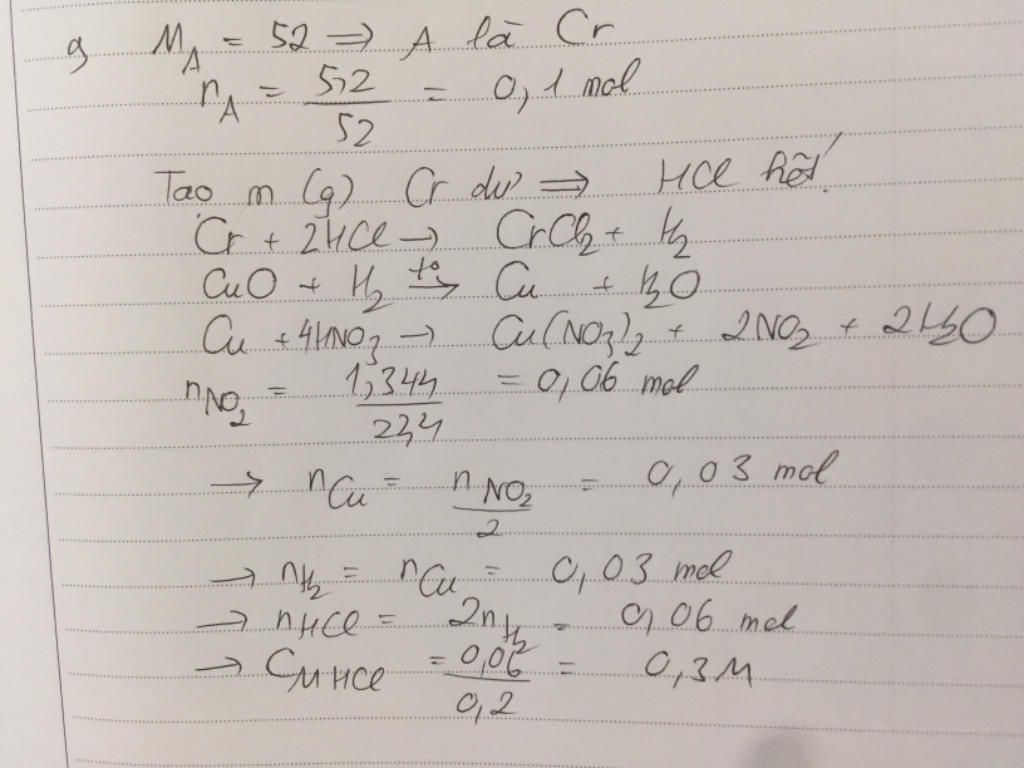 g M_A = 52 => A là Cr
n_A = 5,2/52 = 0,1 mol
Tạo m (g) Cr dư => HCl hết!
Cr + 2HCl → CrCl2 + H2
CuO + H2 t°→ Cu + H2O
Cu + 4HNO3 → Cu(NO3)2 + 2NO2 + 2H2O
n_NO2 = 1,344/22,4 = 0,06 mol
→ n_Cu = n_NO2/2 = 0,03 mol
→ n_H2 = n_Cu = 0,03 mol
→ n_HCl = 2n_H2 = 0,06 mol
→ C_M HCl = 0,06/0,2 = 0,3M